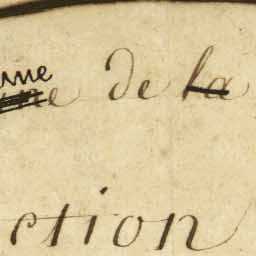 ume de la
ction